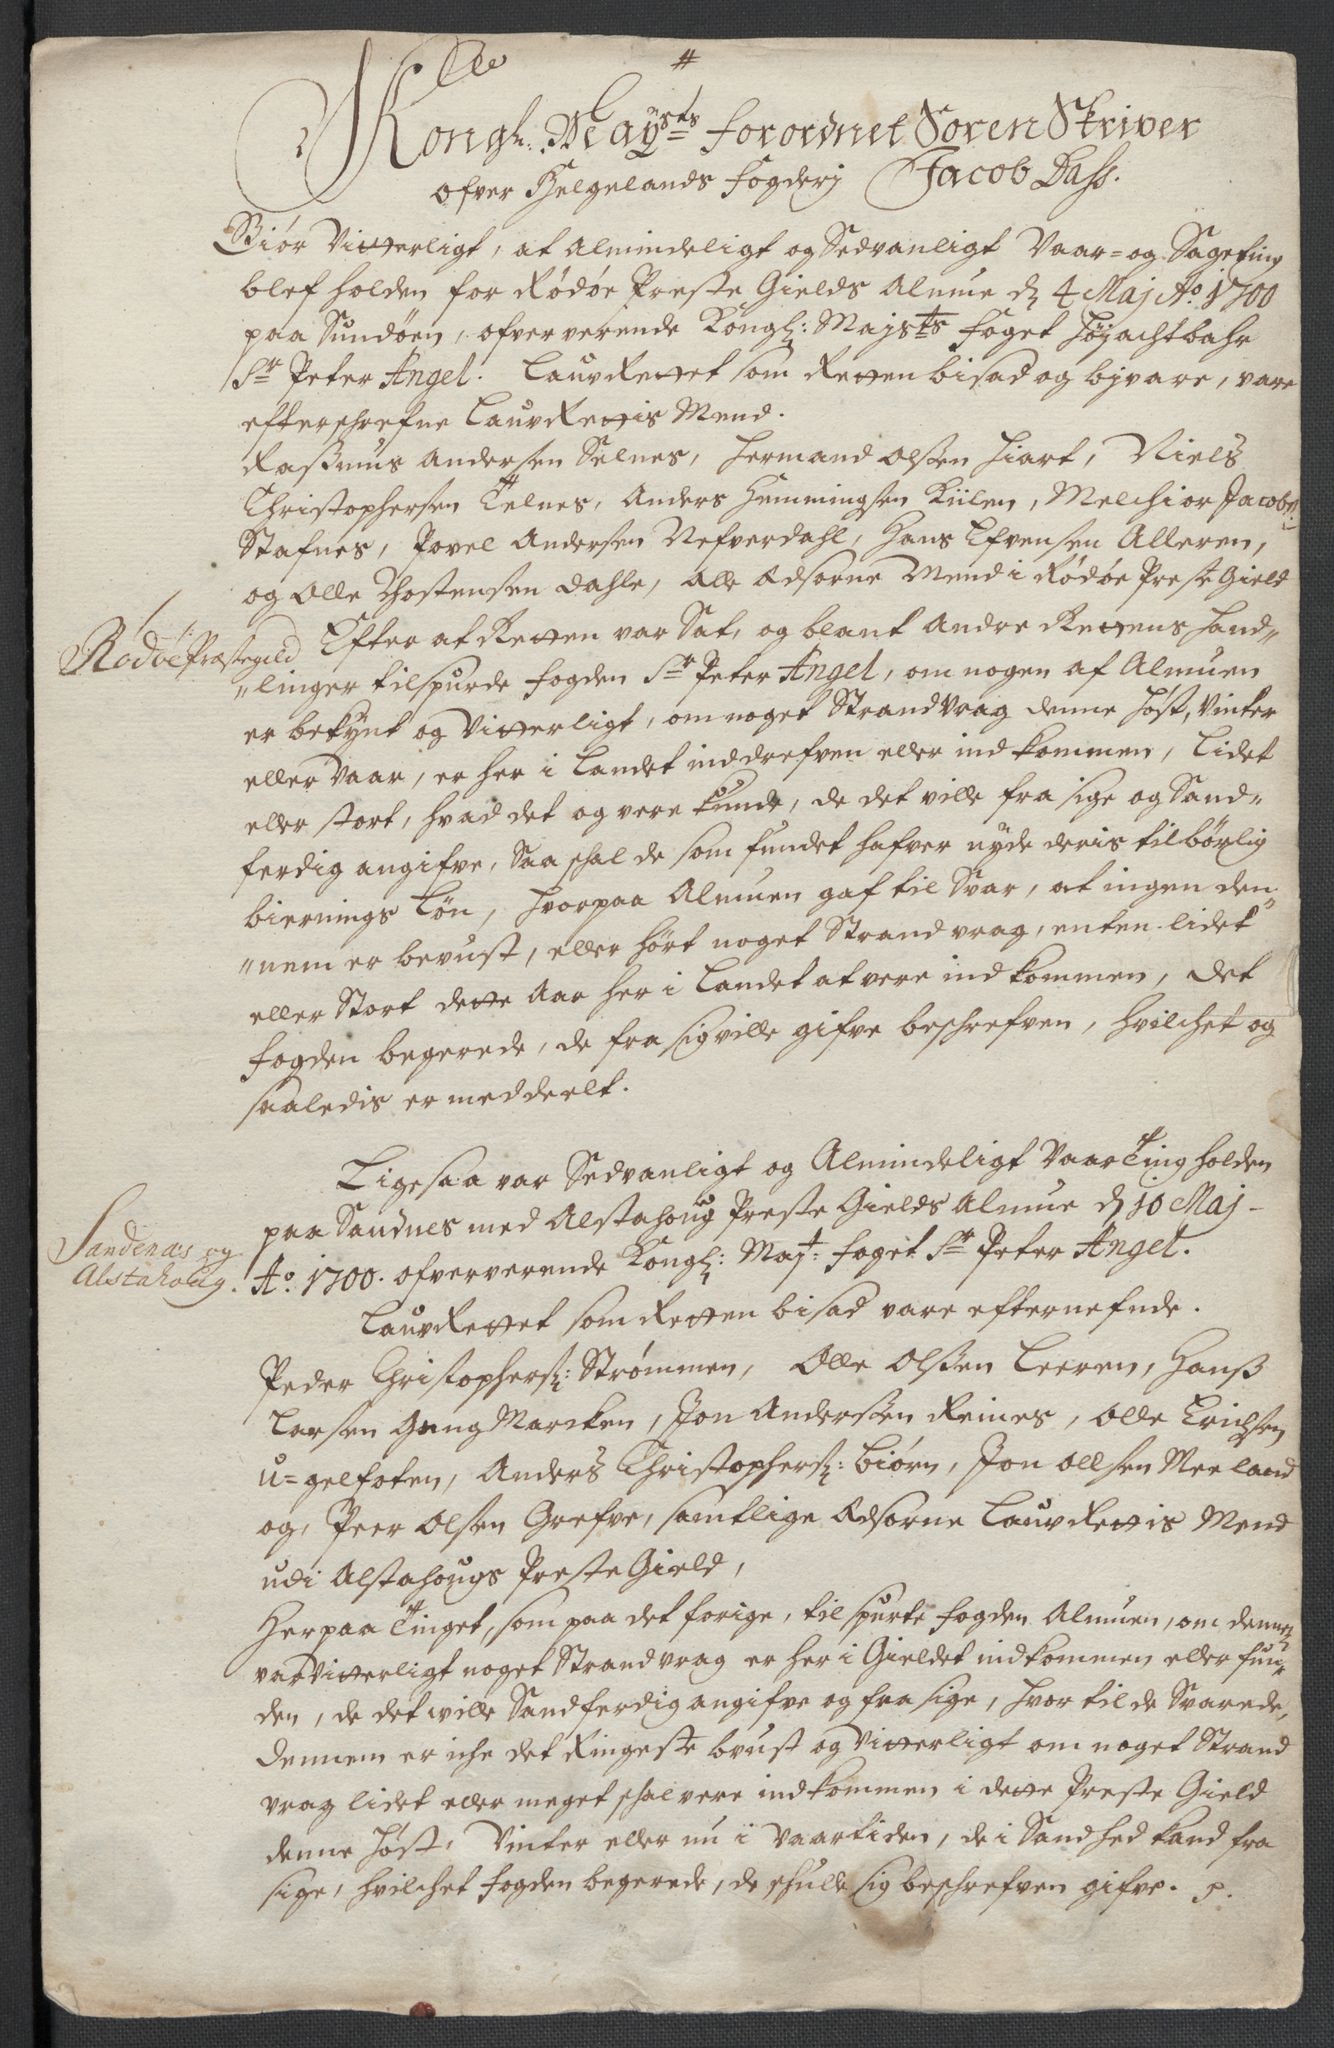 Kongl: Mayst:s forordnet Soren Skriver
ofver Helgelands fogderj Jacob Dass.
Giör Vitterligt, at Almindeligt og Sedvanligt Vaar= og Sageting
blef holden for Rödöe Preste Gields Almue d 4 Maj Ao. 1700
paa Sundöen, ofververende Kongl: Majsts foget Höyachtbahr
Sr Peter Angel. LauvRettet som Retten bisad og bivare, vare
efterschrefne LauvRettis Mend.
Rassmus Andersen Selnes, Hermand Olssen Hiart, Niels
Christophersen Telnes, Anders Hemmingsen Kiilen, Melchior Jacobs:
Stafnes, Povel Andersen Nefverdahl, Hans Efvensen Alleren,
og Olle Thostensen Dahle, Alle Edsorne Mend i Rödöe Preste Gield
Rödöe Præstegield
Efter at Retten var Sat, og blant Andre Rettens Hand„
„linger tilspurde fogden Sr Peter Angel, om nogen af Almuen
er bekynt og Vitterligt, om noget Strandvrag denne Höst, Vinter
eller Vaar, er her i Landet inddrefven eller ind kommen, lidet
eller stort, hvad det og vere kunde, de det ville fra sige og Sand„
ferdig angifve, Saa schal de som fundet hafver nyde deris tilbörlig
biernings Lön, Hvorpaa Almuen gaf til Svar, at ingen den„
„nem er bevust, eller hört noget Strandvrag, enten lidet
eller Stort dette Aar her i Landet at vere ind kommen, det
fogden begerede, de fra sig ville gifve beschrefven, hvilchet og
saaledis er meddeelt.
Ligesaa var Sedvanligt og Almindeligt Vaar Ting holden
paa Sandnes med Alstahoug Preste Gields Almue d 10 Maj
Sandenæs og
Alstahoug.
Ao. 1700. ofververende Kongl: Mayt: foget Sr Peter Angel.
LauvRettet som Retten bisad vare efternefnde.
Peder Christophers: Strömmen, Olle Olssen Leeren, Hanss
Larsen GangMarcken, Jon Anderssen Reines, Olle Erichsen
U=gelfoten, Anders Christophers: Biörn, Jon Ollsen Meeland
og, Peer Olsen Grefve, samtlige Edsorne LauvRettis Mend
udi Alstahougs Preste Gield,
Her paa Tinget, som paa det forige, tilspurte fogden Almuen, om dennem
var Vitterligt noget Strandvrag er her i Gieldet indkommen eller fun„
den, de det wille Sandferdig angifve og fra sige, Hvor til de Svarede,
Dennem er iche det Ringeste bvust og Vitterligt om noget Strand
vrag lidet eller meget schal vere ind kommen i dette Preste Gield
denne Höst, Vinter eller nu i Vaartiden, de i Sandhed kand fra
sige, hvilchet fogden begerede, de schulle sig beschrefven gifve.